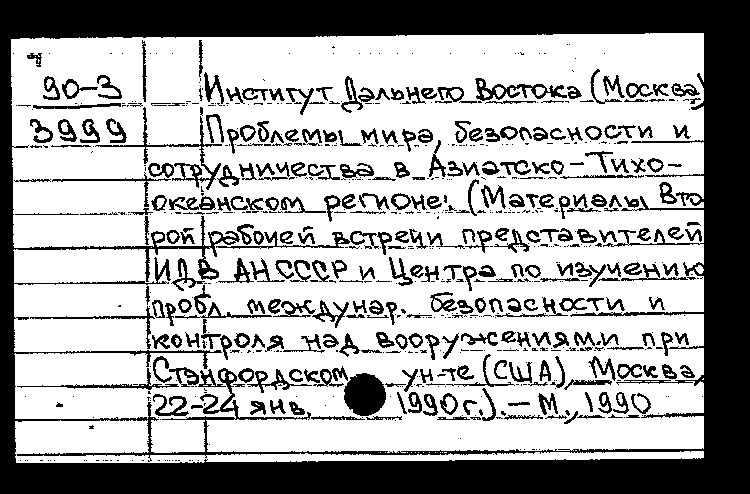 90-3 Институт Дальнего Востока (Москва)
3999 Проблемы мира, безопасности и
сотрудничества в Азиатско-Тихо-
океанском регионе: (Материалы Вто
рой рабочей встречи представителей
ИДВ АН СССР и Центра по изучению
пробл. междунар. безопасности и
контроля над вооружениями при
Стэнфордском ун-те (США), Москва,
22-24 янв. 1990г.).—М., 1990